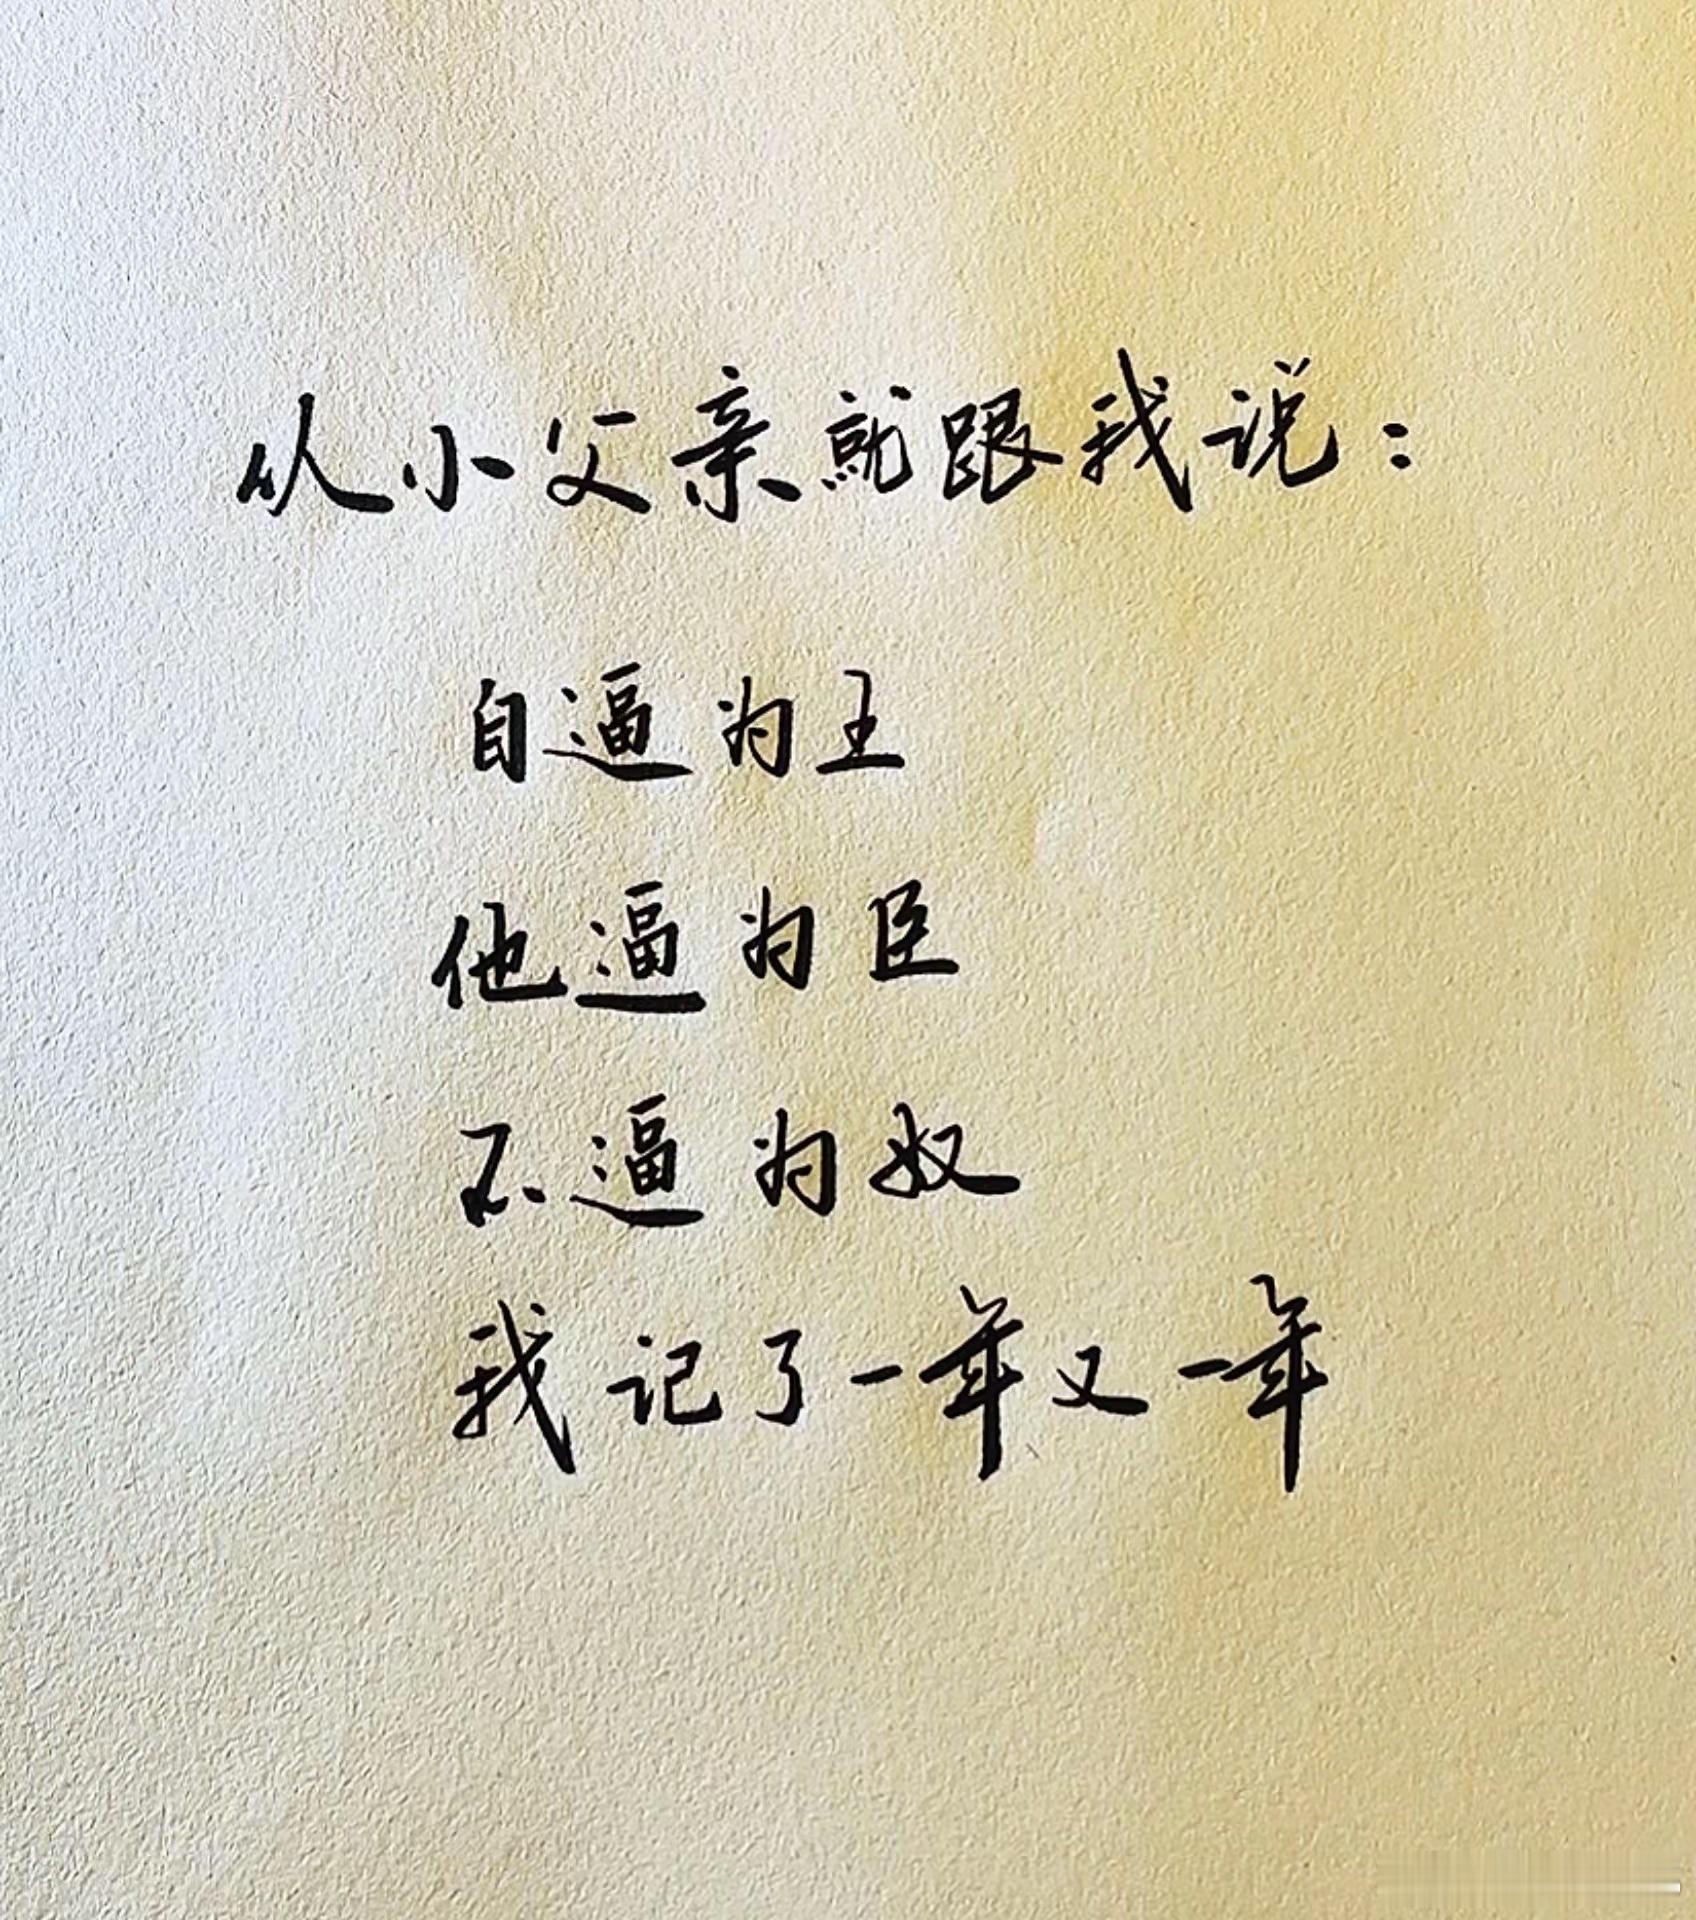 从小父亲就跟我说：
自逼为王
他逼为臣
不逼为奴
我记了一年又一年